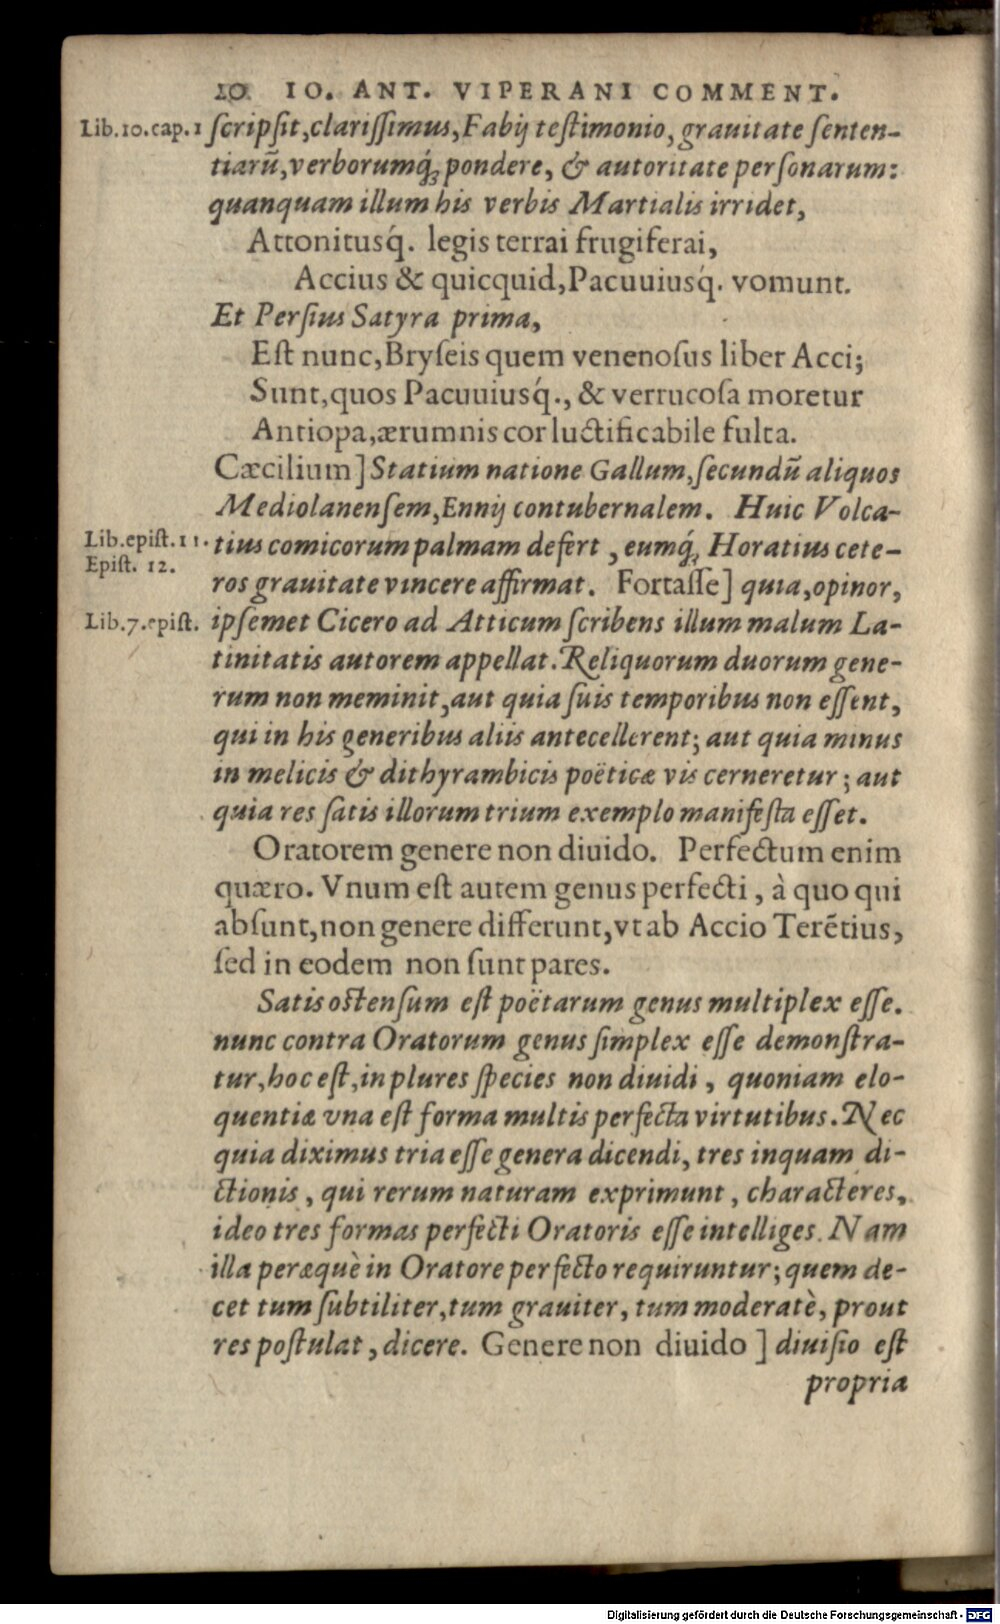 10 IO. ANT. VIPERANI COMMENT.
Lib.10.cap.1 ſcripſit,clariſſimus,Fabij teſtimonio,grauitate ſenten-
tiarũ,verborumq́ꝫ pondere, & autoritate perſonarum:
quanquam illum his verbis Martialis irridet,
Attonitusq́. legis terrai frugiferai,
Accius & quicquid,Pacuuiusq́. vomunt.
Et Perſius Satyra prima,
Eſt nunc,Bryſeis quem venenoſus liber Acci;
Sunt,quos Pacuuiusq́., & verrucoſa moretur
Antiopa,ærumnis cor luctificabile fulta.
Cæcilium] Statium natione Gallum,ſecundũ aliquos
Mediolanenſem,Ennij contubernalem. Huic Volca-
Lib.epiſt.11. tius comicorum palmam defert , eumq́ꝫ Horatius cete-
Epiſt. 12.
ros grauitate vincere affirmat. Fortaſſe] quia,opinor,
Lib.7.epiſt. ipſemet Cicero ad Atticum ſcribens illum malum La-
tinitatis autorem appellat. Reliquorum duorum gene-
rum non meminit,aut quia ſuis temporibus non eſſent,
qui in his generibus aliis antecellerent; aut quia minus
in melicis & dithyrambicis poëticæ vis cerneretur ; aut
quia res ſatis illorum trium exemplo manifeſta eſſet.
Oratorem genere non diuido. Perfectum enim
quæro. Vnum eſt autem genus perfecti , à quo qui
abſunt,non genere differunt,vt ab Accio Terẽtius,
ſed in eodem non ſunt pares.
Satis oſtenſum eſt poëtarum genus multiplex eſſe.
nunc contra Oratorum genus ſimplex eſſe demonſtra-
tur,hoc eſt,in plures ſpecies non diuidi , quoniam elo-
quentiæ vna eſt forma multis perfecta virtutibus. Nec
quia diximus tria eſſe genera dicendi, tres inquam di-
ctionis , qui rerum naturam exprimunt , characteres,
ideo tres formas perfecti Oratoris eſſe intelliges. Nam
illa peræquè in Oratore perfecto requiruntur; quem de-
cet tum ſubtiliter,tum grauiter, tum moderatè, prout
res poſtulat , dicere. Genere non diuido ] diuiſio eſt
propria
Digitalisierung gefördert durch die Deutsche Forschungsgemeinschaft - DFG